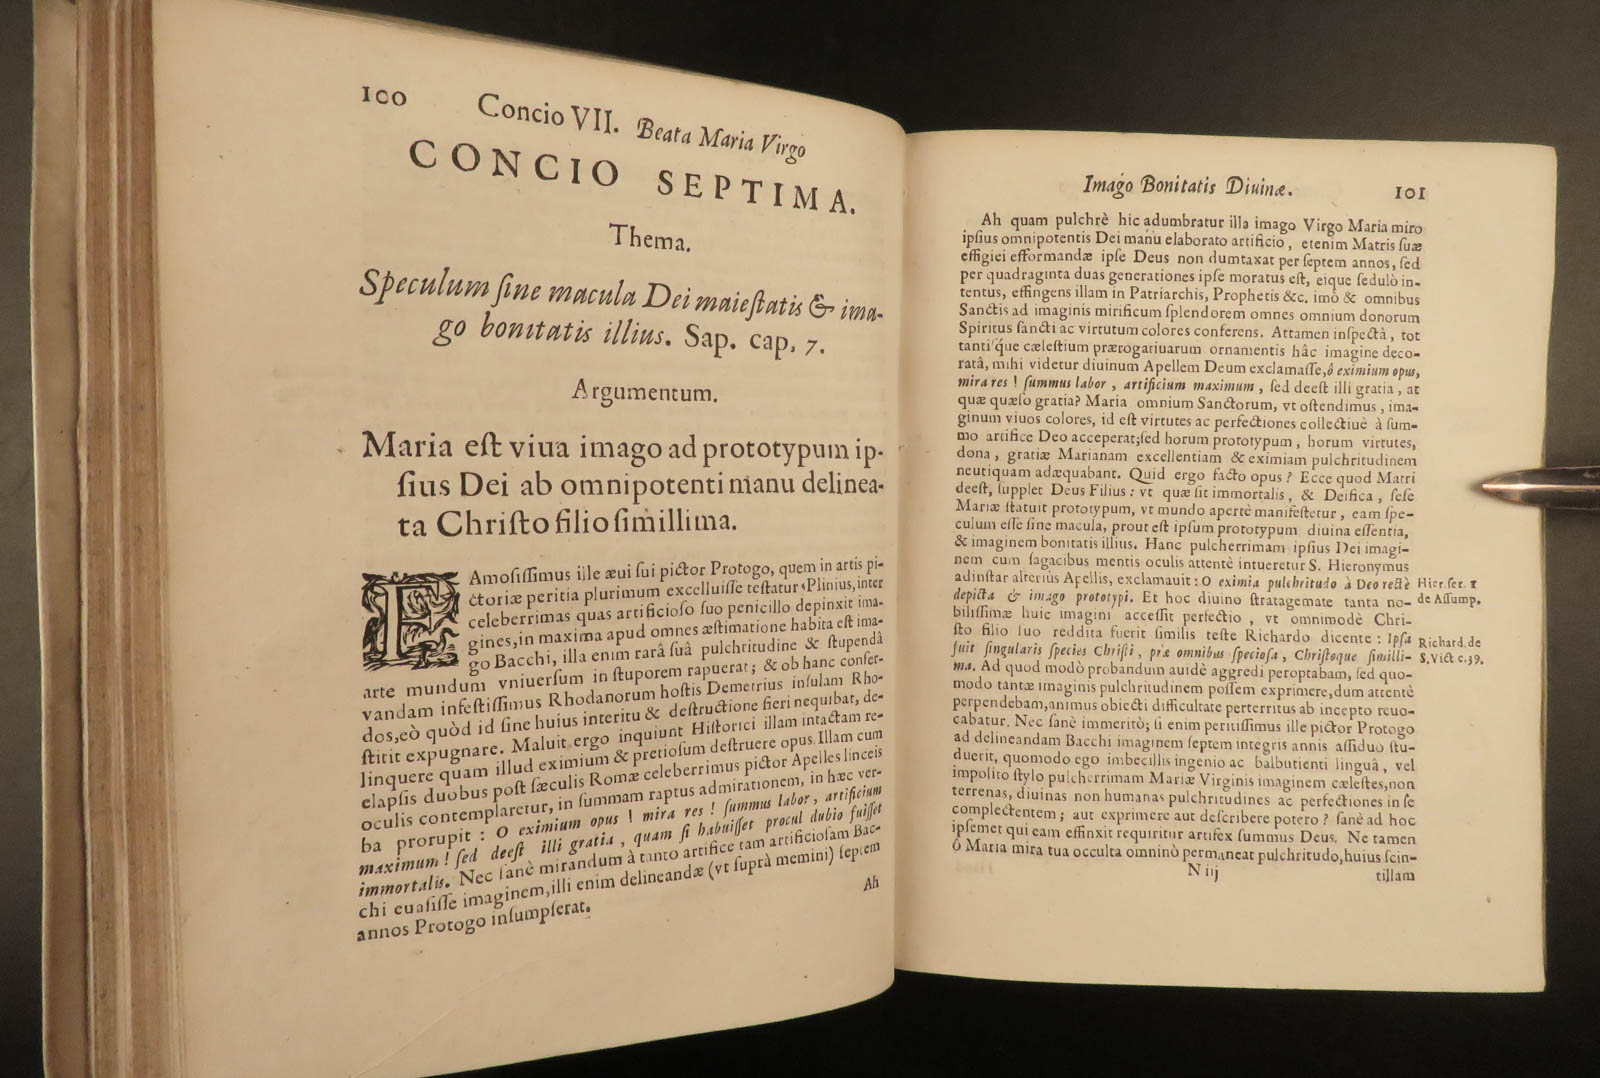 100 Concio VII. Beata Maria Virgo
CONCIO SEPTIMA.
Thema.
Speculum ſine macula Dei maieſtatis & ima-
go bonitatis illius. Sap. cap, 7.
Argumentum.
Maria eſt viua imago ad prototypum ip-
ſius Dei ab omnipotenti manu delinea-
ta Chriſto filio ſimillima.
FAmoſiſſimus ille æui ſui pictor Protogo, quem in artis pi-
ctoriæ peritia plurimum excelluiſſe teſtatur Plinius, inter
celeberrimas quas artificioſo ſuo penicillo depinxit ima-
gines, in maxima apud omnes æſtimatione habita eſt ima-
go Bacchi, illa enim rarâ ſuâ pulchritudine & ſtupendâ
arte mundum vniuerſum in ſtuporem rapuerat; & ob hanc conſer-
vandam infeſtiſſimus Rhodanorum hoſtis Demetrius inſulam Rho-
dos, eò quòd id ſine huius interitu & deſtructione fieri nequibat, de-
ſtitit expugnare. Maluit ergo inquiunt Hiſtorici illam intactam re-
linquere quam illud eximium & pretioſum deſtruere opus. Illam cum
elapſis duobus poſt ſæculis Romæ celeberrimus pictor Apelles linceis
oculis contemplaretur, in ſummam raptus admirationem, in hæc ver-
ba prorupit : O eximium opus ! mira res ! ſummus labor, artificium
maximum ! ſed deeſt illi gratia, quam ſi habuiſſet procul dubio fuiſſet
immortalis. Nec ſanè mirandum à tanto artifice tam artificioſam Bac-
chi euaſiſſe imaginem, illi enim delineandæ (vt ſuprà memini) ſeptem
annos Protogo inſumpſerat.
Ah
Imago Bonitatis Diuinæ. 101
Ah quam pulchrè hic adumbratur illa imago Virgo Maria miro
ipſius omnipotentis Dei manu elaborato artificio, etenim Matris ſuæ
effigiei efformandæ ipſe Deus non dumtaxat per ſeptem annos, ſed
per quadraginta duas generationes ipſe moratus eſt, eique ſedulò in-
tentus, effingens illam in Patriarchis, Prophetis &c. imò & omnibus
Sanctis ad imaginis mirificum ſplendorem omnes omnium donorum
Spiritus ſancti ac virtutum colores conferens. Attamen inſpectâ, tot
tantiſque cæleſtium prærogatiuarum ornamentis hâc imagine deco-
ratâ, mihi videtur diuinum Apellem Deum exclamaſſe, ô eximium opus,
mira res ! ſummus labor, artificium maximum, ſed deeſt illi gratia, at
quæ quæſo gratia? Maria omnium Sanctorum, vt oſtendimus, ima-
ginum viuos colores, id eſt virtutes ac perfectiones collectiuè à ſum-
mo artifice Deo acceperat; ſed horum prototypum, horum virtutes,
dona, gratiæ Marianam excellentiam & eximiam pulchritudinem
neutiquam adæquabant. Quid ergo facto opus ? Ecce quod Matri
deeſt, ſupplet Deus Filius : vt quæ ſit immortalis, & Deifica, ſeſe
Mariæ ſtatuit prototypum, vt mundo apertè manifeſtetur, eam ſpe-
culum eſſe ſine macula, prout eſt ipſum prototypum diuina eſſentia,
& imaginem bonitatis illius. Hanc pulcherrimam ipſius Dei imagi-
nem cum ſagacibus mentis oculis attentè intueretur S. Hieronymus
adinſtar alterius Apellis, exclamauit : O eximia pulchritudo à Deo rectè
depicta & imago prototypi. Et hoc diuino ſtratagemate tanta no-
biliſſimæ huic imagini acceſſit perfectio, vt omnimodè Chri-
ſto filio ſuo reddita fuerit ſimilis teſte Richardo dicente : Ipſa
fuit ſingularis ſpecies Chriſti, præ omnibus ſpecioſa, Chriſtoque ſimilli-
ma. Ad quod modò probandum auidè aggredi peroptabam, ſed quo-
modo tantæ imaginis pulchritudinem poſſem exprimere, dum attentè
perpendebam, animus obiecti difficultate perterritus ab incepto reuo-
cabatur. Nec ſanè immeritò; ſi enim peritiſſimus ille pictor Protogo
ad delineandam Bacchi imaginem ſeptem integris annis aſſiduo ſtu-
duerit, quomodo ego imbecillis ingenio ac balbutienti linguâ, vel
impolito ſtylo pulcherrimam Mariæ Virginis imaginem cæleſtes, non
terrenas, diuinas non humanas pulchritudines ac perfectiones in ſe
complectentem ; aut exprimere aut deſcribere potero ? ſanè ad hoc
ipſemet qui eam effinxit requiritur artifex ſummus Deus. Ne tamen
ô Maria mira tua occulta omninò permaneat pulchritudo, huius ſcin-
N iij tillam
Hier. ſer. 1
de Aſſump.
Richard. de
S. Vict c. 39.